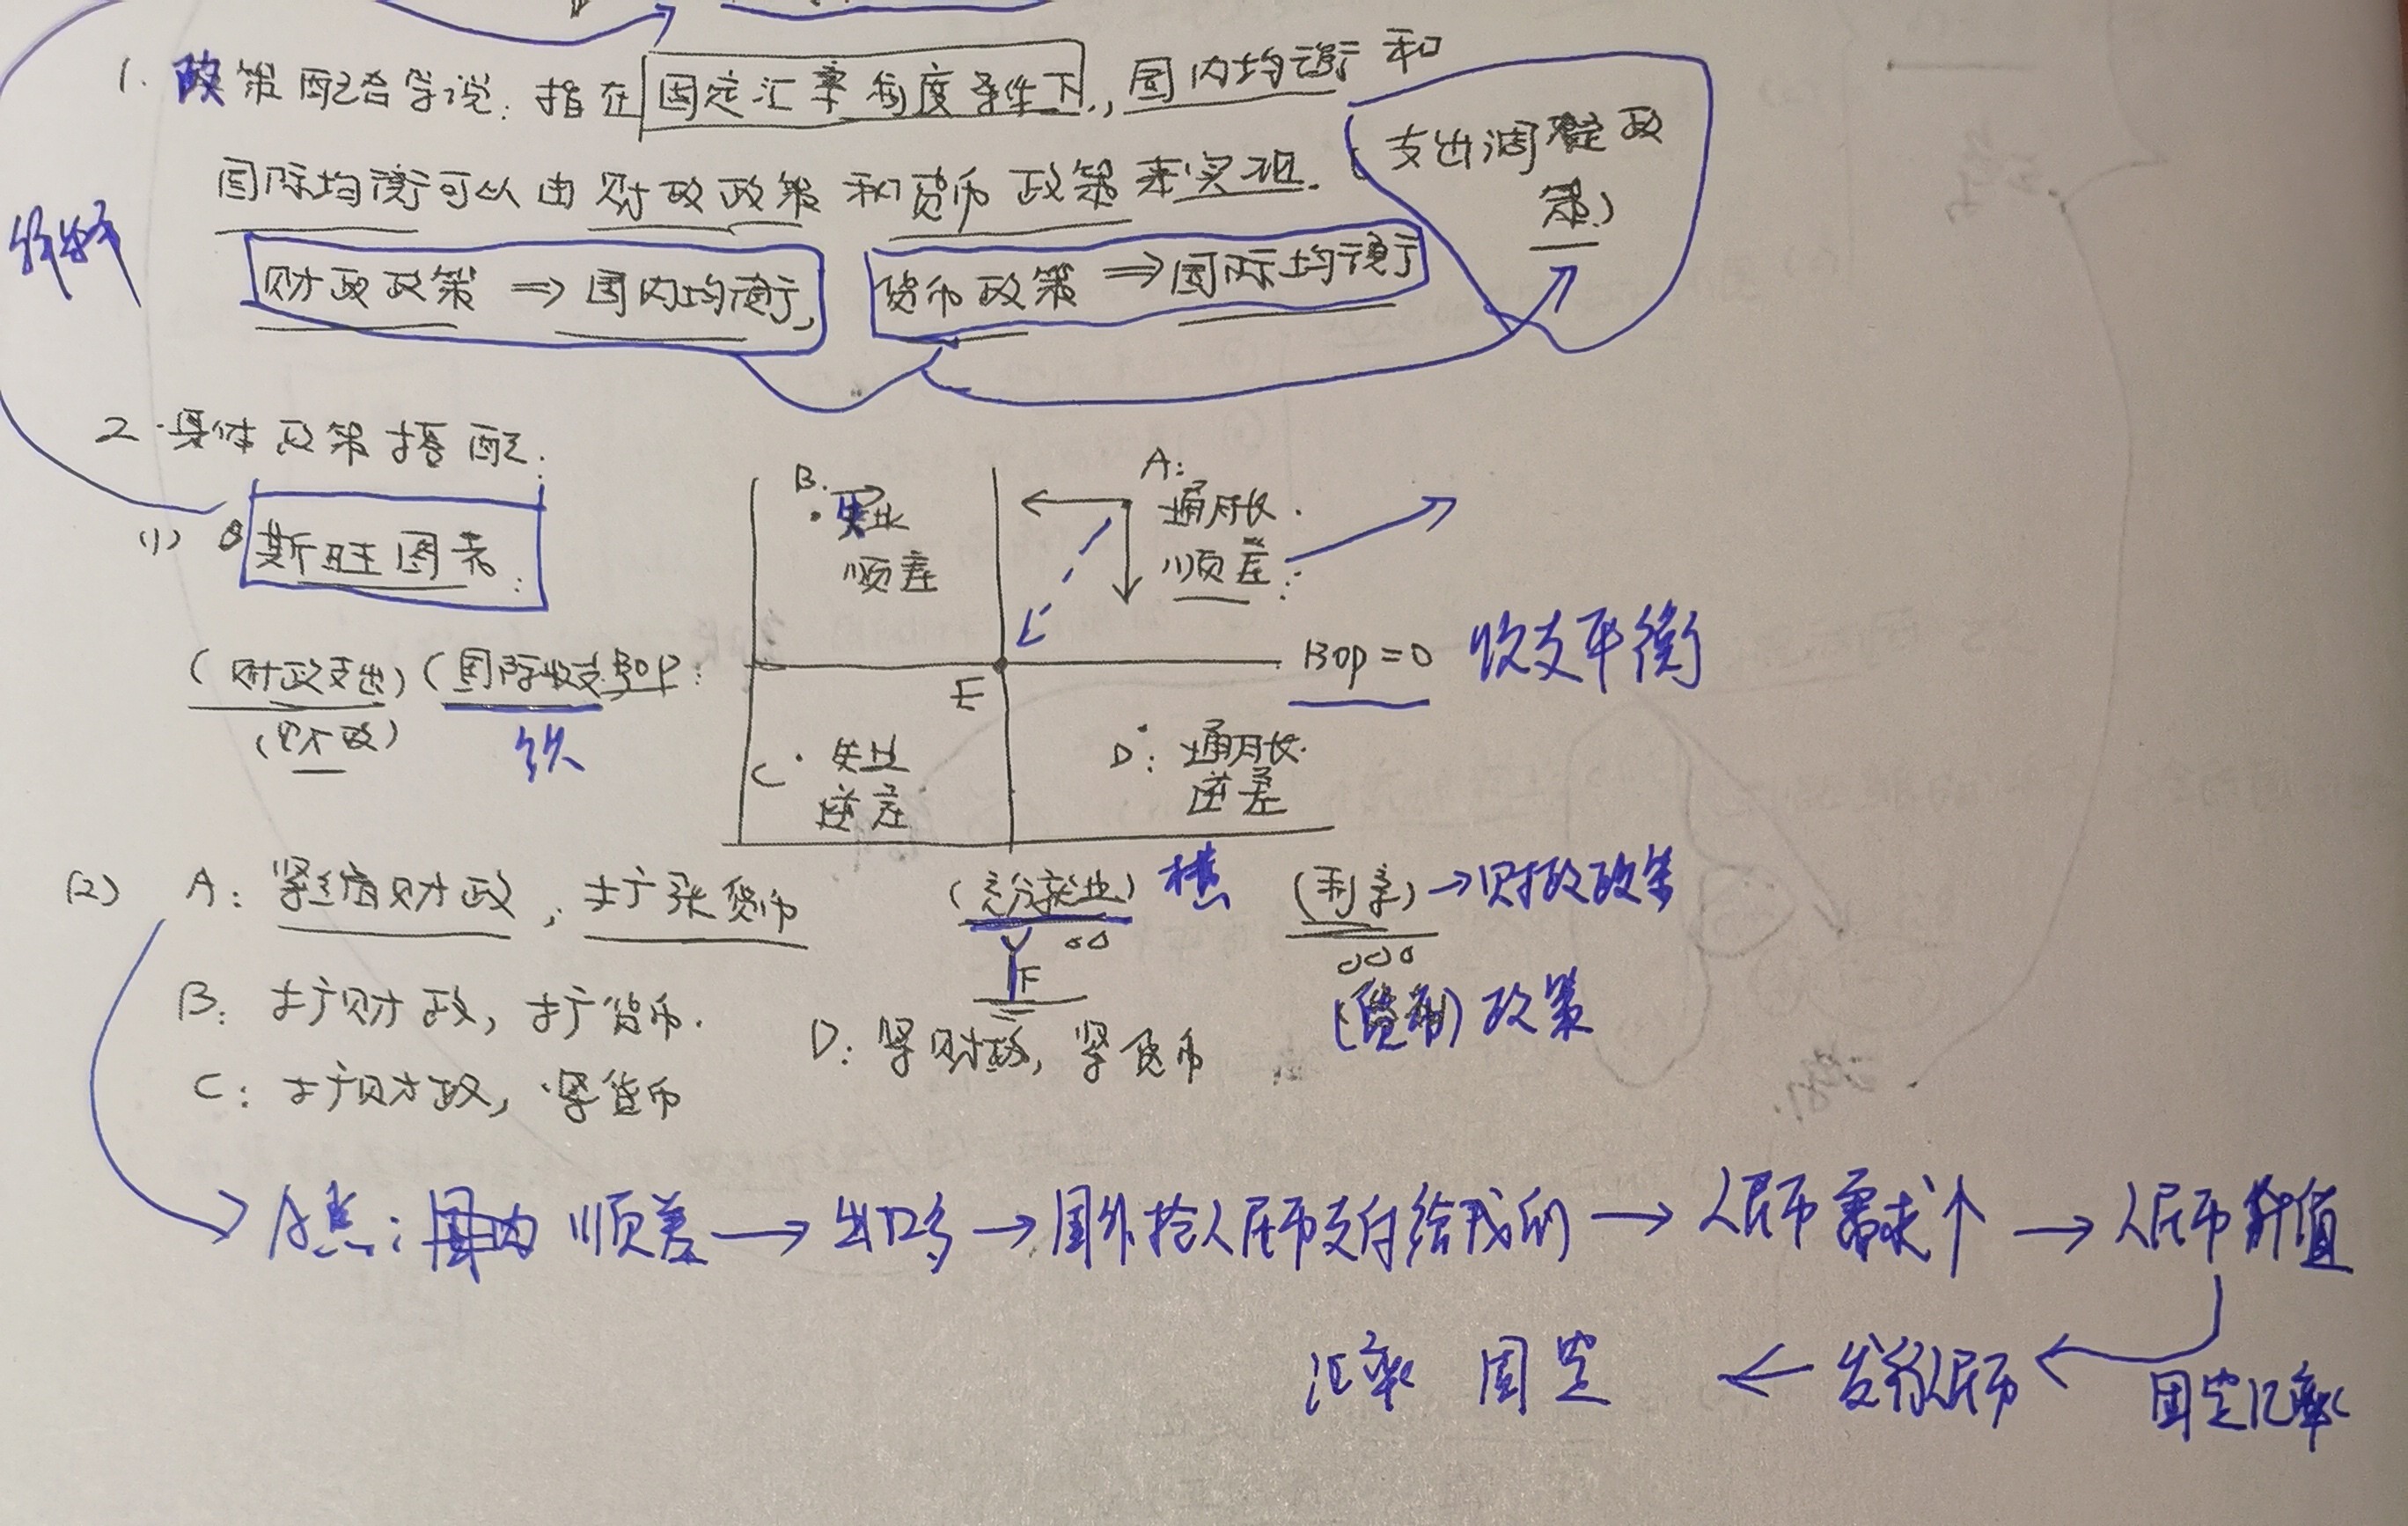 1. 政策配合学说：指在固定汇率制度条件下，国内均衡和
国际均衡可以由财政政策和货币政策来实现.（支出调整政
策）
财政政策 ⇒ 国内均衡， 货币政策 ⇒ 国际均衡
2. 具体政策搭配：
(1) 斯旺图表：
B. 失业
顺差
A: 通胀.
顺差
（财政支出）（国际收支BOP：
（财政）
纵
E
BOP=0 收支平衡
C. 失业
逆差
D: 通胀.
逆差
（充分就业）横
YF
（利率）→财政政策
（货币）政策
(2) A: 紧缩财政，扩张货币
B: 扩财政，扩货币.
C: 扩财政，紧货币
D: 紧财政，紧货币
A点：国内 顺差→出口多→国外抢人民币支付给我们→人民币需求↑→人民币升值
汇率 固定 ← 发行人民币 ← 固定汇率